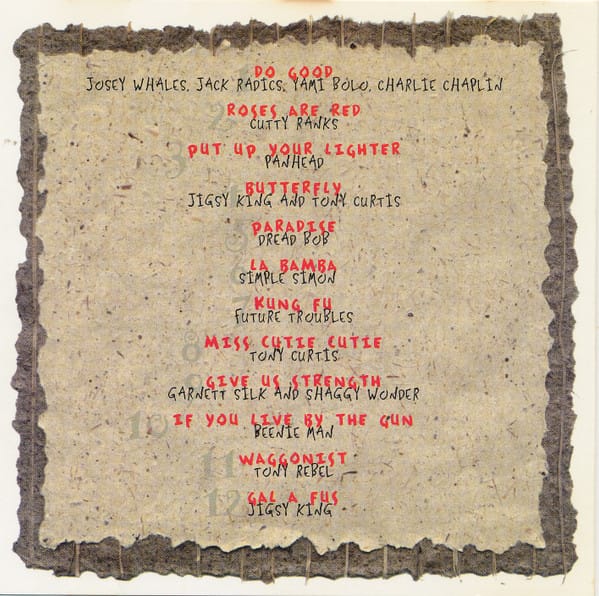 1 DO GOOD
JOSEY WHALES, JACK RADICS, YAMI BOLO, CHARLIE CHAPLIN
2 ROSES ARE RED
CUTTY RANKS
3 PUT UP YOUR LIGHTER
PANHEAD
4 BUTTERFLY
JIGSY KING AND TONY CURTIS
5 PARADISE
DREAD BOB
6 LA BAMBA
SIMPLE SIMON
7 KUNG FU
FUTURE TROUBLES
8 MISS CUTIE CUTIE
TONY CURTIS
9 GIVE US STRENGTH
GARNETT SILK AND SHAGGY WONDER
10 IF YOU LIVE BY THE GUN
BEENIE MAN
11 WAGGONIST
TONY REBEL
12 GAL A FUS
JIGSY KING